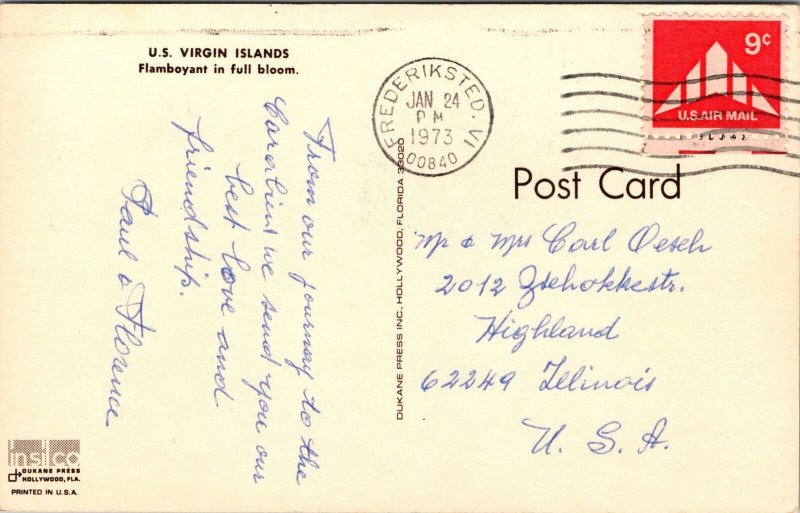 U.S. VIRGIN ISLANDS
Flamboyant in full bloom.
From our journay to the
Carabient we send you our
best love and
friendship.
Paul & Florence
DUKANE PRESS INC., HOLLYWOOD, FLORIDA 33020
FREDERIKSTED. VI
JAN 24
PM
1973
00840
9c
U.S. AIR MAIL
Post Card
Mr & Mrs Carl Oesch
2012 Zschokkestr.
Highland
62249 Illinois
U. S. A.
insico
DUKANE PRESS
HOLLYWOOD, FLA.
PRINTED IN U.S.A.